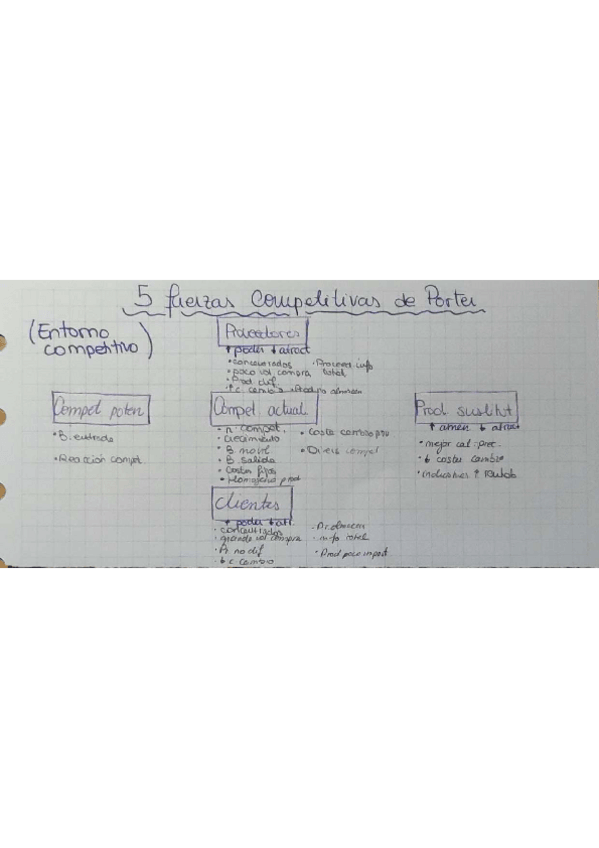 5 fuerzas competitivas de Porter
(Entorno
competitivo)
Proveedores
↑ poder ↓ atract
• concentrados
• poco vol compra
• Prod dif.
• ↑ c. cambio
• Proveed info
total
• Prod no almacen
Compet poten
• B. entrada
• Reacción compet.
Compet actual
• n. compet.
• crecimiento
• B movil
• B salida
• Costes fijos
• Homogene prod
• Coste cambio pro
• Divers compet
Prod sustitut
↑ amen ↓ atract
• mejor cal-prec.
• ↓ costes cambio
• industrias ↑
Clientes
↑ poder ↓ atr.
• concentrados
• grande vol compra
• Pr no dif
• ↓ c. cambio
• Pr. almacen
• info total
• Prod poco import